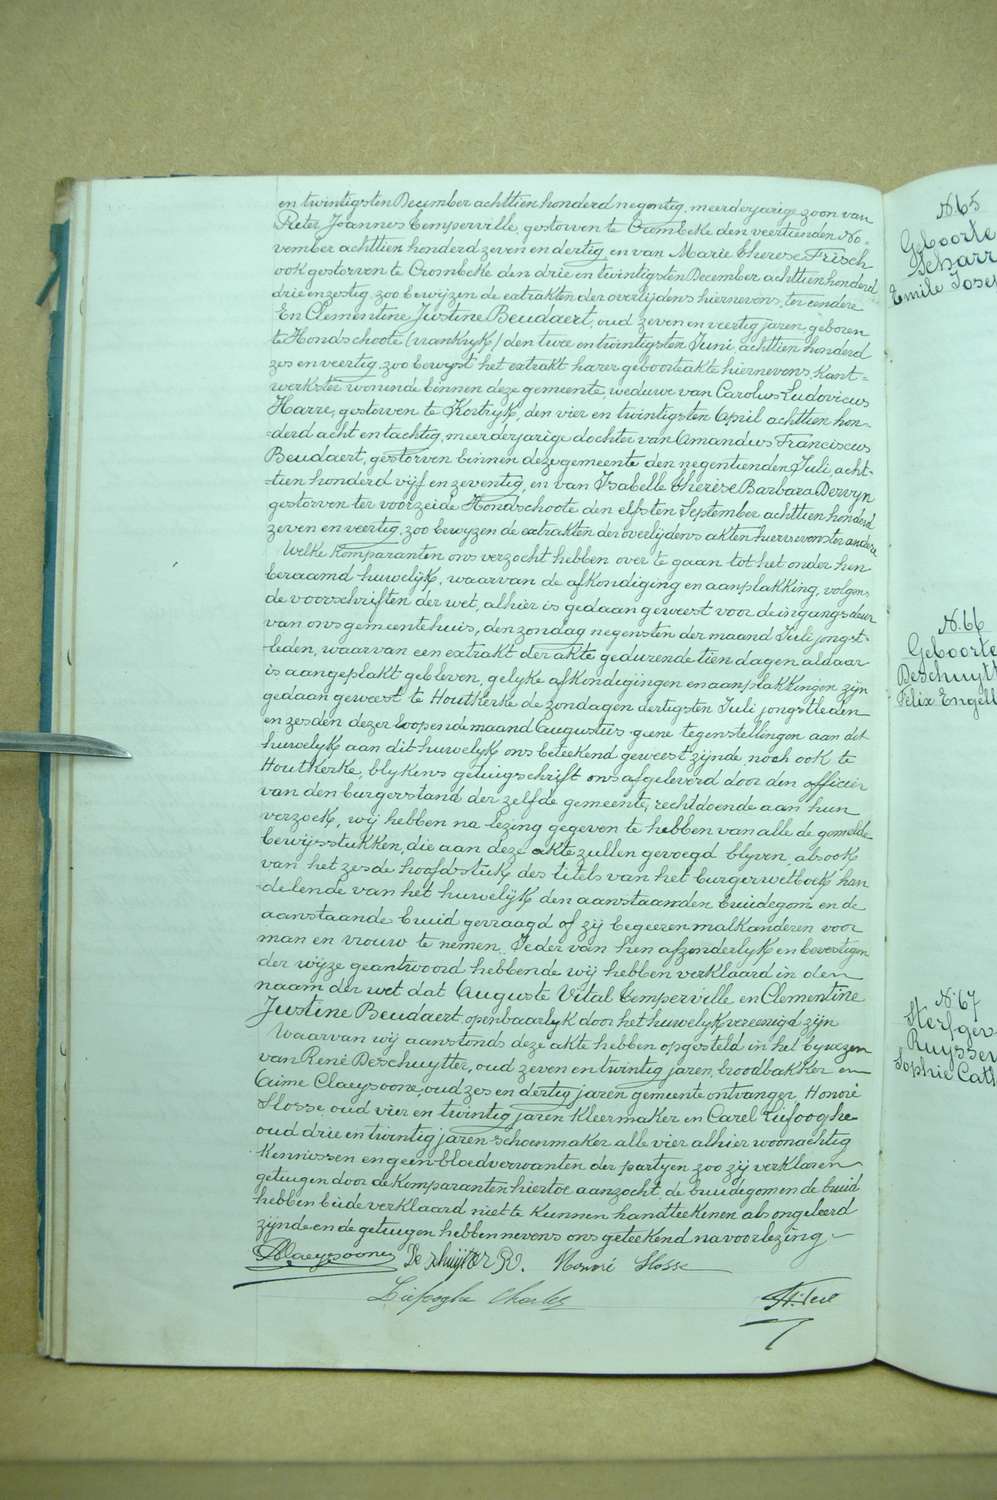 en twintigsten December achttien honderd negentig, meerderjarige zoon van
Pieter Joannes Temperville, gestorven te Crombeke den veertienden No-
vember achttien honderd zeven en dertig, en van Marie Therese Frisch
ook gestorven te Crombeke den drie en twintigsten December achttien honderd
drie en zestig, zoo bewijzen de extrakten der overlijdens hiernevens, ter eendere
En Clementine Justine Beudaert, oud zeven en veertig jaren, geboren
te Hondschoote (vrankryk) den twee en twintigsten Juni achttien honderd
zes en veertig, zoo bewyst het extrakt harer geboorteakte hiernevens, kant=
werkster wonende binnen deze gemeente, weduwe van Carolus Ludovicus
Harre, gestorven te Kortryk, den vier en twintigsten April achttien hon-
derd acht en tachtig, meerderjarige dochter van Amandus Franciscus
Beudaert, gestorven binnen deze gemeente den negentienden Juli, acht-
tien honderd vijf en zeventig, en van Isabelle Thérèse Barbara Dervyn
gestorven ter voorzeide Hondschoote den elfsten September achttien honderd
zeven en veertig, zoo bewyzen de extrakten der overlijdens akten hiernevens ter andere
Welke komparanten ons verzocht hebben over te gaan tot het onder hen
beraamd huwelijk, waarvan de afkondiging en aanplakking, volgens
de voorschriften der wet, alhier is gedaan geweest voor de ingangsdeur
van ons gemeentehuis, den zondag negensten der maand Juli jongst-
leden, waarvan een extrakt der akte gedurende tien dagen aldaar
is aangeplakt gebleven, gelyke afkondigingen en aanplakkingen zijn
gedaan geweest te Houtkerke de zondagen dertigsten Juli jongstleden
en zesden dezer loopende maand Augustus geene tegenstellingen aan dit
huwelyk aan dit huwelyk ons beteekend geweest zijnde, noch ook te
Houtkerke, blykens getuigschrift ons afgeleverd door den officier
van den burgerstand der zelfde gemeente, rechtdoende aan hun
verzoek, wij hebben na lezing gegeven te hebben van alle de gemelde
bewijsstukken, die aan deze akte zullen gevoegd blyven, alsook
van het zesde hoofdstuk des titels van het burgerwetboek han
delende van het huwelijk den aanstaanden bruidegom en de
aanstaande bruid gevraagd of zij begeeren malkanderen voor
man en vrouw te nemen. Ieder van hen afzonderlyk en bevestigen
der wyze geantwoord hebbende wij hebben verklaard in den
naam der wet dat Auguste Vital Temperville en Clementine
Justine Beudaert, openbaarlyk door het huwelyk vereenigd zijn
Waarvan wij aanstonds deze akte hebben opgesteld in het bywezen
van René Deschuytter, oud zeven en twintig jaren, broodbakker en
Aimé Claeysoone, oud zes en dertig jaren gemeente ontvanger, Honoré
Slosse, oud vier en twintig jaren kleermaker en Carel Liefooghe
oud drie en twintig jaren schoenmaker alle vier alhier woonachtig
kennissen en geen bloedverwanten der partyen zoo zij verklaren
getuigen door de komparanten hiertoe aanzocht, de bruidegom en de bruid
hebben beide verklaard niet te kunnen handteekenen als ongeleerd
zijnde en de getuigen hebben nevens ons geteekend na voorlezing.
Claeysoone De Schuytter R. Honoré Slosse
Liefooghe Charles
N. 65
Geboorte
Scharr
Emile Josep
N. 66
Geboorte
Deschuytt
Félix Engelb
N. 67
Sterfgev
Ruyssen
Sophie Cath